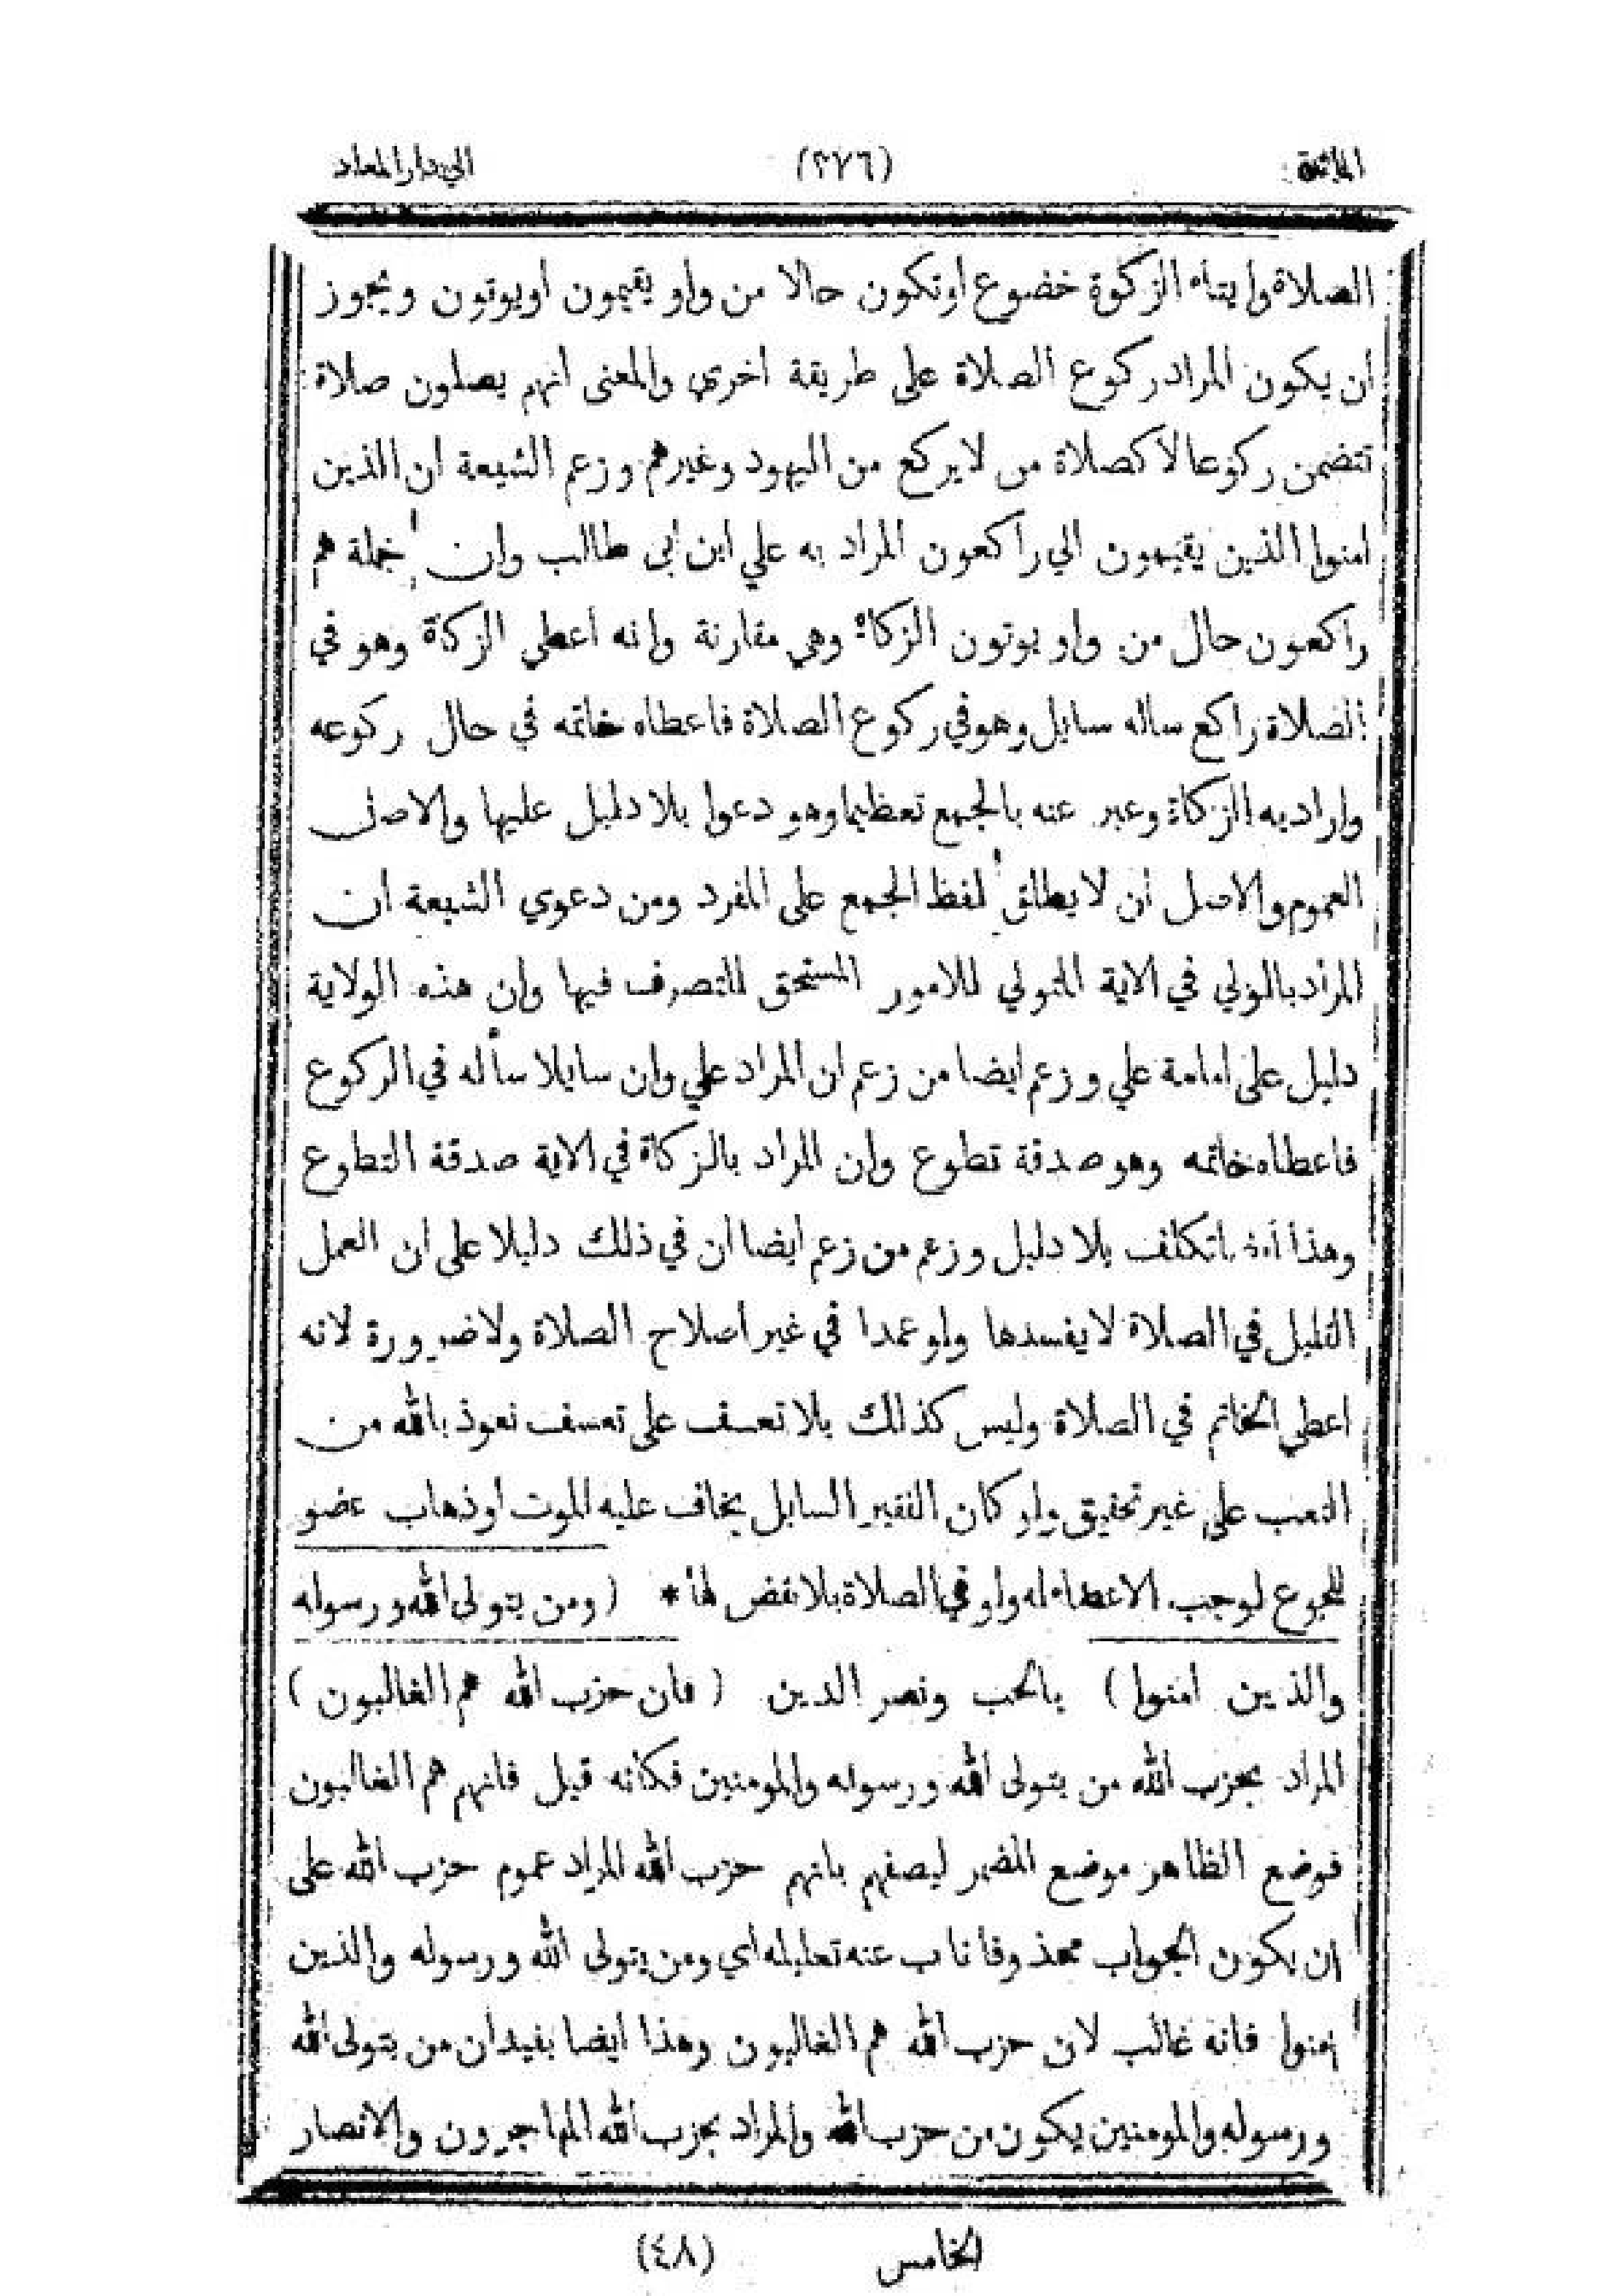 المائدة (٣٧٦) الي دار المعاد
الصلاة وايتاء الزكوة خضوع او تكون حالا من واو يقيمون او يوتون ويجوز
ان يكون المراد ركوع الصلاة على طريقة اخرى والمعنى انهم يصلون صلاة
تتضمن ركوعا لا كصلاة من لا يركع من اليهود وغيرهم وزعم الشيعة ان الذين
امنوا الذين يقيمون الي راكعون المراد به علي ابن ابي طالب وان جملة هم
راكعون حال من واو يوتون الزكاة وهي مقارنة وانه اعطى الزكاة وهو في
الصلاة راكع ساله سايل وهو في ركوع الصلاة فاعطاه خاتمه في حال ركوعه
واراد به الزكاة وعبر عنه بالجمع تعظيما وهو دعوا بلا دليل عليها والاصل
العموم والاصل ان لا يطلق لفظ الجمع على المفرد ومن دعوي الشيعة ان
المراد بالولي في الاية المتولي للامور المستحق للتصرف فيها وان هذه الولاية
دليل على امامة علي وزعم ايضا من زعم ان المراد علي وان سايلا سأله في الركوع
فاعطاه خاتمه وهو صدقة تطوع وان المراد بالزكاة في الاية صدقة التطوع
وهذا تكلف بلا دليل وزعم من زعم ايضا ان في ذلك دليلا على ان العمل
القليل في الصلاة لا يفسدها ولو عمدا في غير اصلاح الصلاة ولا ضرورة لانه
اعطي الخاتم في الصلاة وليس كذلك بلا تعسف على تعسف نعوذ بالله من
التعب على غير تحقيق ولو كان الفقير السايل يخاف عليه الموت او ذهاب عضو
للجوع لوجب الاعطاء له ولو في الصلاة بلا نقض لها * (ومن يتولى الله ورسوله
والذين امنوا) بالحب ونصر الدين (فان حزب الله هم الغالبون)
المراد بحزب الله من يتولى الله ورسوله والمومنين فكأنه قيل فانهم هم الغالبون
فوضع الظاهر موضع المضمر ليصفهم بانهم حزب الله المراد عموم حزب الله على
ان يكون الجواب محذوفا ناب عنه تعليله اي ومن يتولى الله ورسوله والذين
امنوا فانه غالب لان حزب الله هم الغالبون وهذا ايضا يفيد ان من يتولى الله
ورسوله والمومنين يكون من حزب الله والمراد بحزب الله المهاجرون والانصار
الخامس (٤٨)